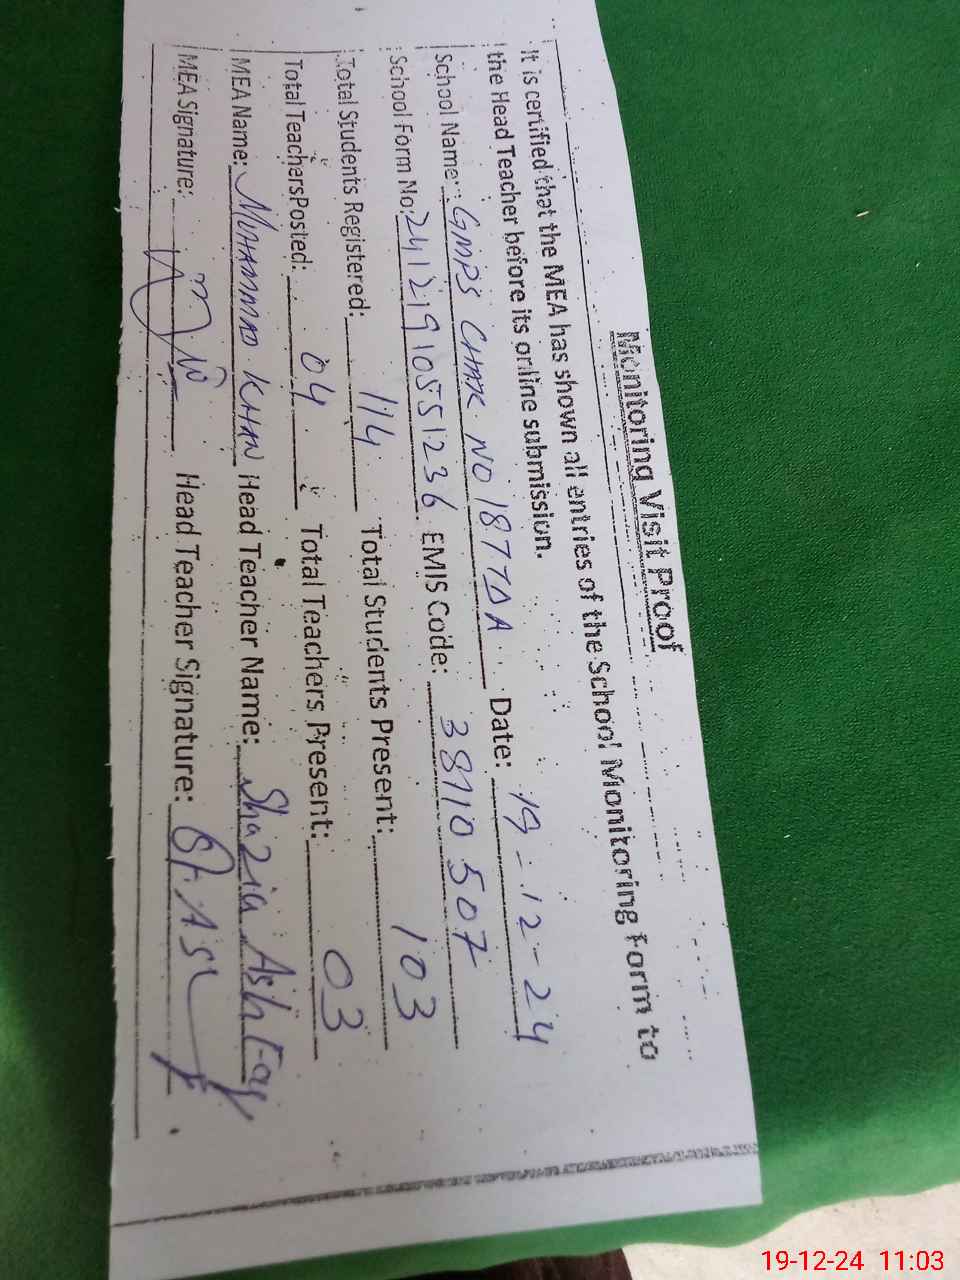 Monitoring Visit Proof
It is certified that the MEA has shown all entries of the School Monitoring Form to
the Head Teacher before its online submission.
School Name: GMPS CHAK NO 187TDA Date: 19-12-24
School Form No: 24121910551236 EMIS Code: 38110507
Total Students Registered: 114 Total Students Present: 103
Total Teachers Posted: 04 Total Teachers Present: 03
MEA Name: MUHAMMAD KHAN Head Teacher Name: Shazia Ashfaq
MEA Signature: Head Teacher Signature:
19-12-24 11:03